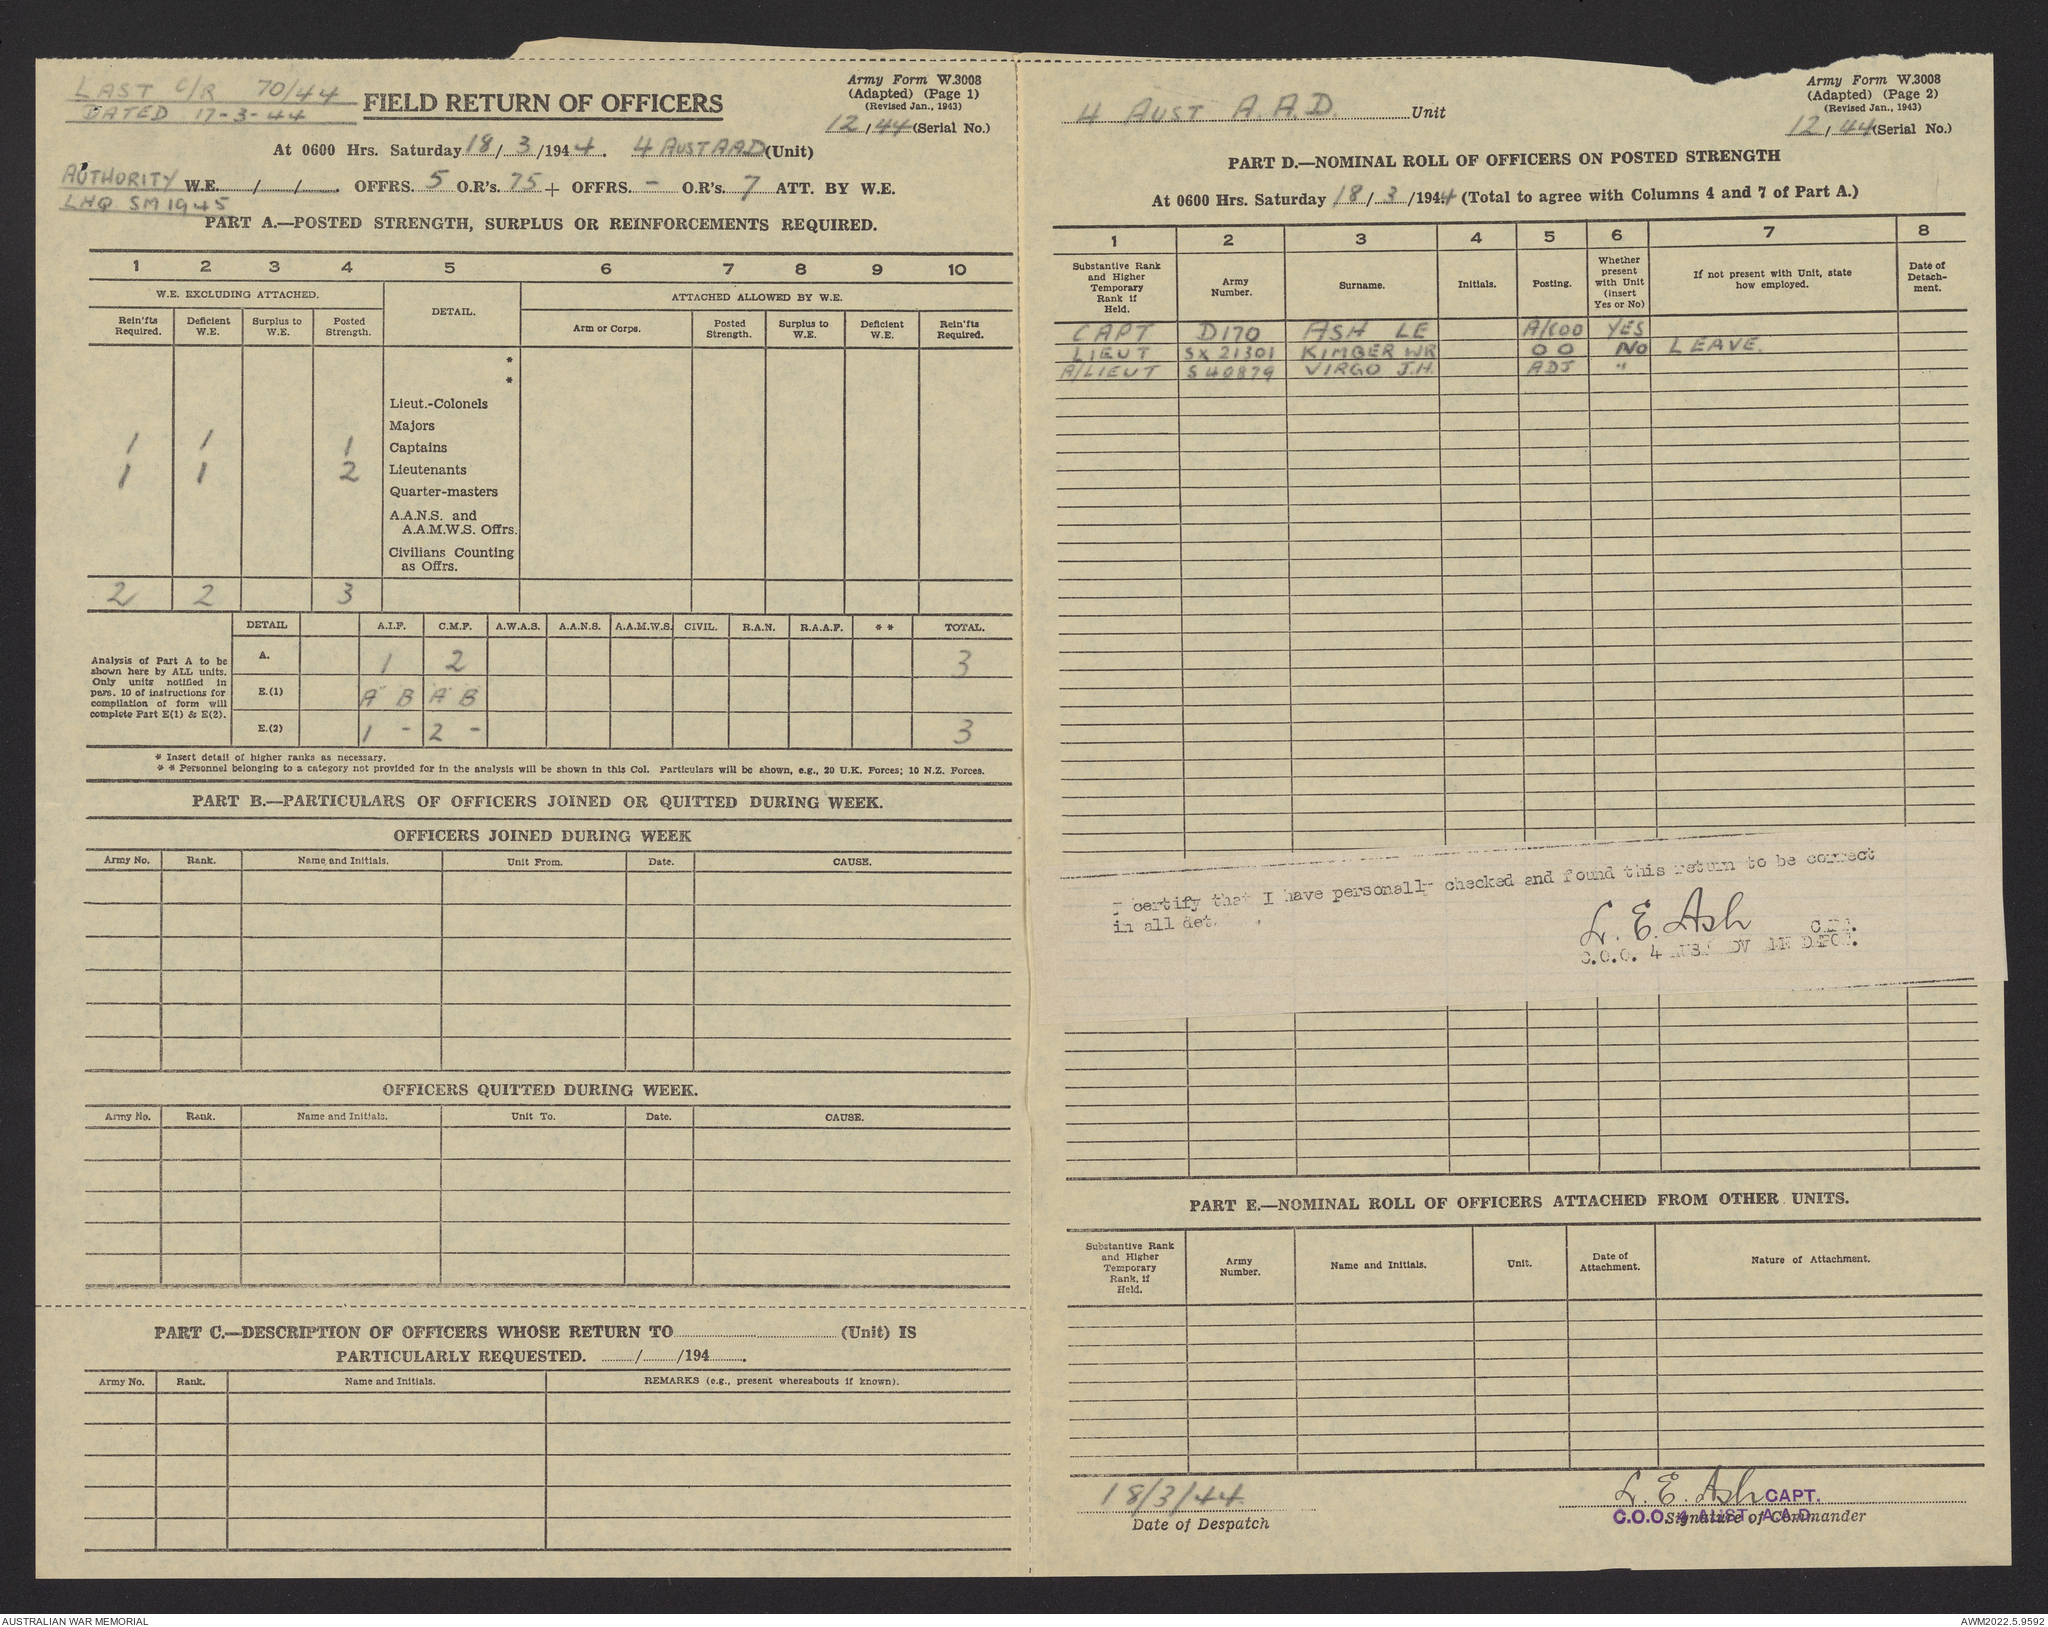 LAST C/R 70/44
DATED 17-3-44
FIELD RETURN OF OFFICERS
Army Form W.3008
(Adapted) (Page 1)
(Revised Jan., 1943)
12/44 (Serial No.)
At 0600 Hrs. Saturday 18/3/1944. 4 AUST AAD (Unit)
AUTHORITY W.E. / / . OFFRS. 5 O.R's. 75 + OFFRS. - O.R's. 7 ATT. BY W.E.
LHQ SM1945
PART A.—POSTED STRENGTH, SURPLUS OR REINFORCEMENTS REQUIRED.
1 2 3 4 5 6 7 8 9 10
W.E. EXCLUDING ATTACHED. DETAIL. ATTACHED ALLOWED BY W.E.
Rein'fts Required. Deficient W.E. Surplus to W.E. Posted Strength. Arm or Corps. Posted Strength. Surplus to W.E. Deficient W.E. Rein'fts Required.
*
*
Lieut.-Colonels
Majors
1 1 1 Captains
1 1 2 Lieutenants
Quarter-masters
A.A.N.S. and
A.A.M.W.S. Offrs.
Civilians Counting
as Offrs.
2 2 3
DETAIL A.I.F. C.M.F. A.W.A.S. A.A.N.S. A.A.M.W.S. CIVIL. R.A.N. R.A.A.F. * * TOTAL.
Analysis of Part A to be
shown here by ALL units.
Only units notified in
para. 10 of instructions for
compilation of form will
complete Part E(1) & E(2).
A. 1 2 3
E.(1) A B A B
E.(2) 1 - 2 - 3
* Insert detail of higher ranks as necessary.
* * Personnel belonging to a category not provided for in the analysis will be shown in this Col. Particulars will be shown, e.g., 20 U.K. Forces; 10 N.Z. Forces.
PART B.—PARTICULARS OF OFFICERS JOINED OR QUITTED DURING WEEK.
OFFICERS JOINED DURING WEEK
Army No. Rank. Name and Initials. Unit From. Date. CAUSE.
OFFICERS QUITTED DURING WEEK.
Army No. Rank. Name and Initials. Unit To. Date. CAUSE.
PART C.—DESCRIPTION OF OFFICERS WHOSE RETURN TO (Unit) IS
PARTICULARLY REQUESTED. / /194 .
Army No. Rank. Name and Initials. REMARKS (e.g., present whereabouts if known).
4 AUST A.A.D. Unit
Army Form W.3008
(Adapted) (Page 2)
(Revised Jan., 1943)
12/44 (Serial No.)
PART D.—NOMINAL ROLL OF OFFICERS ON POSTED STRENGTH
At 0600 Hrs. Saturday 18/3/1944 (Total to agree with Columns 4 and 7 of Part A.)
1 2 3 4 5 6 7 8
Substantive Rank and Higher Temporary Rank if Held. Army Number. Surname. Initials. Posting. Whether present with Unit (insert Yes or No) If not present with Unit, state how employed. Date of Detachment.
CAPT D170 ASH LE A/COO YES
LIEUT SX 21301 KIMBER WR OO NO LEAVE.
A/LIEUT S 40879 VIRGO J.H. ADJ "
I certify that I have personally checked and found this return to be correct
in all det
L. E. Ash
C.O.O. 4
PART E.—NOMINAL ROLL OF OFFICERS ATTACHED FROM OTHER UNITS.
Substantive Rank and Higher Temporary Rank, if Held. Army Number. Name and Initials. Unit. Date of Attachment. Nature of Attachment.
18/3/44 L. E. Ash CAPT.
C.O.O. 4 AUST. A.A.D.
Date of Despatch Signature of Commander
AUSTRALIAN WAR MEMORIAL AWM2022.5.9592